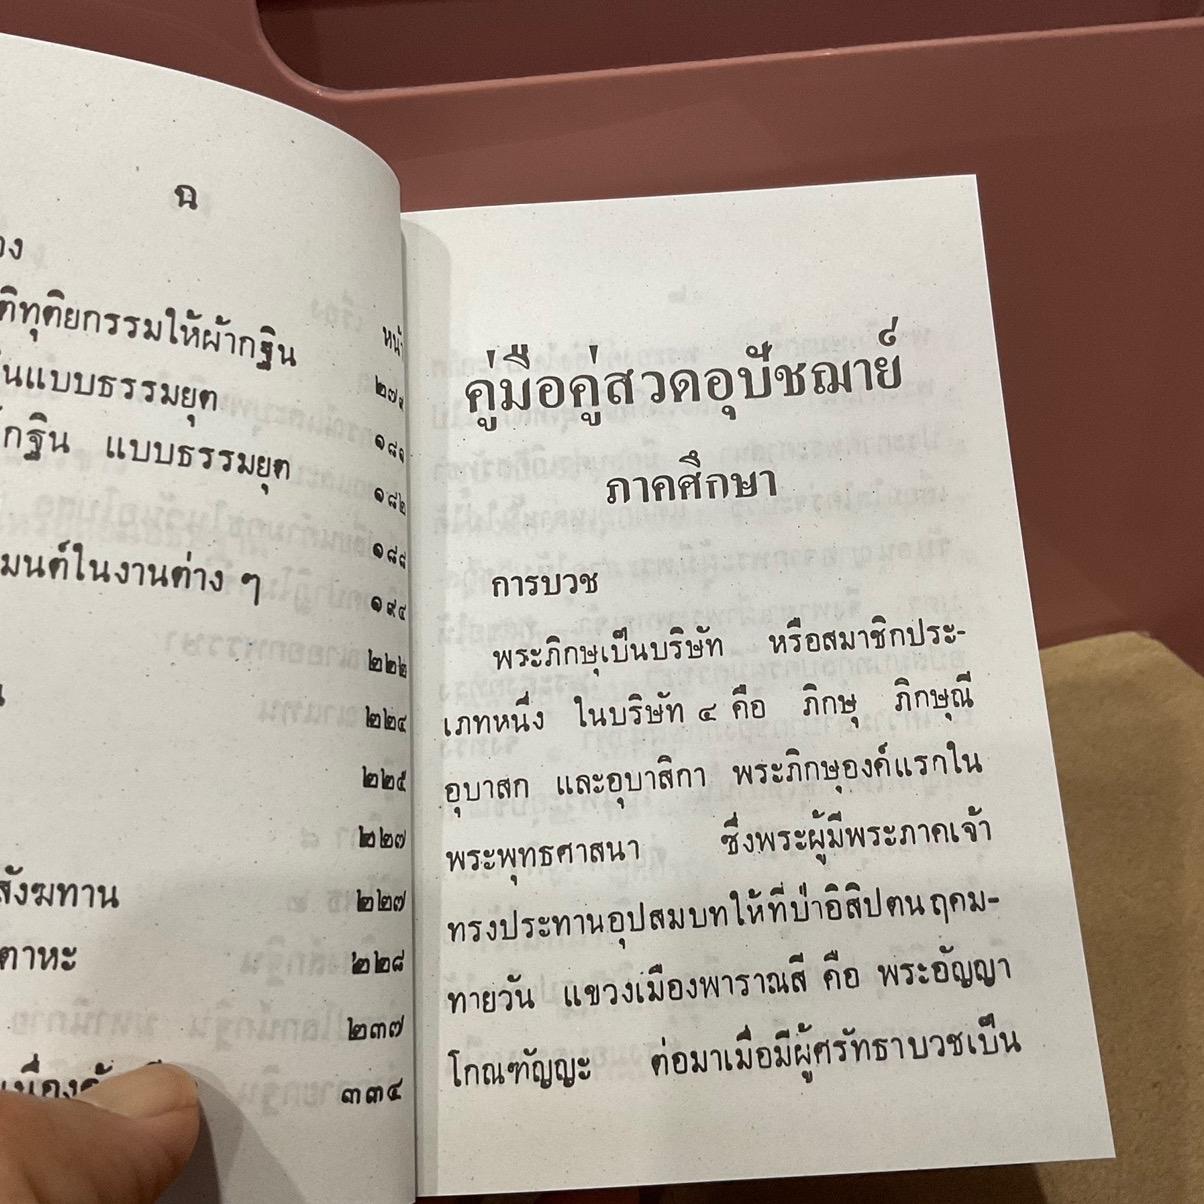 ฉ
หน้า
ติทุติยกรรมให้ผ้ากฐิน
แบบธรรมยุต ๑๘๑
กฐิน แบบธรรมยุต ๑๘๒
๑๘๘
มนต์ในงานต่าง ๆ ๑๙๔
๒๒๒
๒๒๔
๒๒๕
๒๒๗
สังฆทาน ๒๒๗
๒๒๘
๒๓๗
๓๓๔
คู่มือคู่สวดอุปัชฌาย์
ภาคศึกษา
การบวช
พระภิกษุเป็นบริษัท หรือสมาชิกประ-
เภทหนึ่ง ในบริษัท ๔ คือ ภิกษุ ภิกษุณี
อุบาสก และอุบาสิกา พระภิกษุองค์แรกใน
พระพุทธศาสนา ซึ่งพระผู้มีพระภาคเจ้า
ทรงประทานอุปสมบทให้ที่ป่าอิสิปตนฤคม-
ทายวัน แขวงเมืองพาราณสี คือ พระอัญญา
โกณฑัญญะ ต่อมาเมื่อมีผู้ศรัทธาบวชเป็น